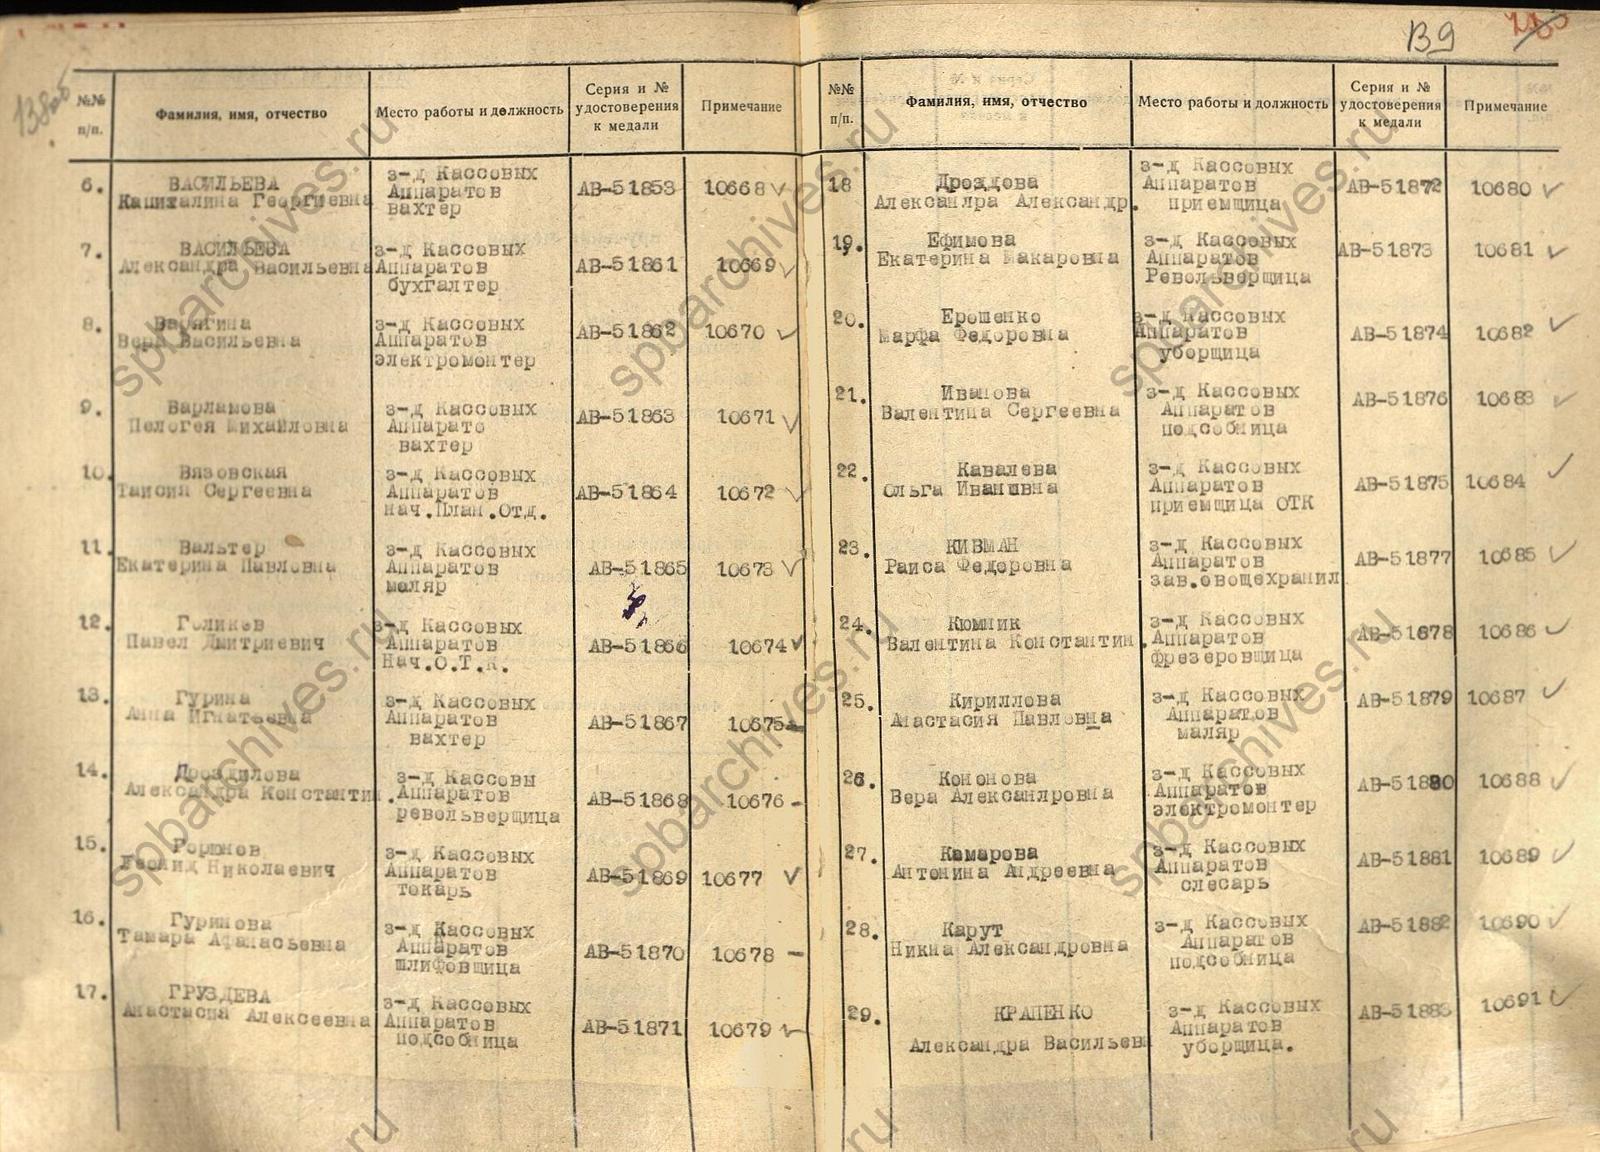 138об
№№ п/п.
Фамилия, имя, отчество
Место работы и должность
Серия и № удостоверения к медали
Примечание
6. ВАСИЛЬЕВА з-д Кассовых
Капиталина Георгиевна Аппаратов АВ-51853 10668 ✓
вахтер
7. ВАСИЛЬЕВА з-д Кассовых
Александра Васильевна Аппаратов АВ-51861 10669 ✓
бухгалтер
8. Варягина з-д Кассовых
Вера Васильевна Аппаратов АВ-51862 10670 ✓
электромонтер
9. Варламова з-д Кассовых
Пелогея Михайловна Аппарато АВ-51863 10671 ✓
вахтер
10. Вязовская з-д Кассовых
Таисия Сергеевна Аппаратов АВ-51864 10672 ✓
нач.План.Отд.
11. Вальтер з-д Кассовых
Екатерина Павловна Аппаратов АВ-51865 10673 ✓
маляр
12. Голиков з-д Кассовых
Павел Дмитриевич Аппаратов АВ-51866 10674 ✓
Нач.О.Т.К.
13. Гурина з-д Кассовых
Анна Игнатьевна Аппаратов АВ-51867 10675
вахтер
14. Дроздилова з-д Кассовы
Александра Константин. Аппаратов АВ-51868 10676 -
револьверщица
15. з-д Кассовых
Леонид Николаевич Аппаратов АВ-51869 10677 ✓
токарь
16. Гуринова з-д Кассовых
Тамара Афанасьевна Аппаратов АВ-51870 10678 -
шлифовщица
17. ГРУЗДЕВА з-д Кассовых
Анастасия Алексеевна Аппаратов АВ-51871 10679 ✓
подсобница
139
№№ п/п.
Фамилия, имя, отчество
Место работы и должность
Серия и № удостоверения к медали
Примечание
18 Дроздова з-д Кассовых
Александра Александр. Аппаратов АВ-51872 10680 ✓
приемщица
19. Ефимова з-д Кассовых
Екатерина Макаровна Аппаратов АВ-51873 10681 ✓
Револьверщица
20. Ерошенко з-д Кассовых
Марфа Федоровна Аппаратов АВ-51874 10682 ✓
уборщица
21. Иванова з-д Кассовых
Валентина Сергеевна Аппаратов АВ-51876 10683 ✓
подсобница
22. Кавалева з-д Кассовых
Ольга Аппаратов АВ-51875 10684 ✓
приемщица ОТК
23. КИВМАН з-д Кассовых
Раиса Федоровна Аппаратов АВ-51877 10685 ✓
зав.овощехранил
24. Кюмник з-д Кассовых
Валентина Константин. Аппаратов АВ-51878 10686 ✓
фрезеровщица
25. Кириллова з-д Кассовых
Анастасия Павловна Аппаратов АВ-51879 10687 ✓
маляр
26. Кононова з-д Кассовых
Вера Александровна Аппаратов АВ-51880 10688 ✓
электромонтер
27. Комарова з-д Кассовых
Антонина Андреевна Аппаратов АВ-51881 10689 ✓
слесарь
28. Карут з-д Кассовых
Никна Александровна Аппаратов АВ-51882 10690 ✓
подсобница
29. КРАПЕНКО з-д Кассовых
Александра Васильевн Аппаратов АВ-51883 10691 ✓
уборщица.
spbarchives.ru